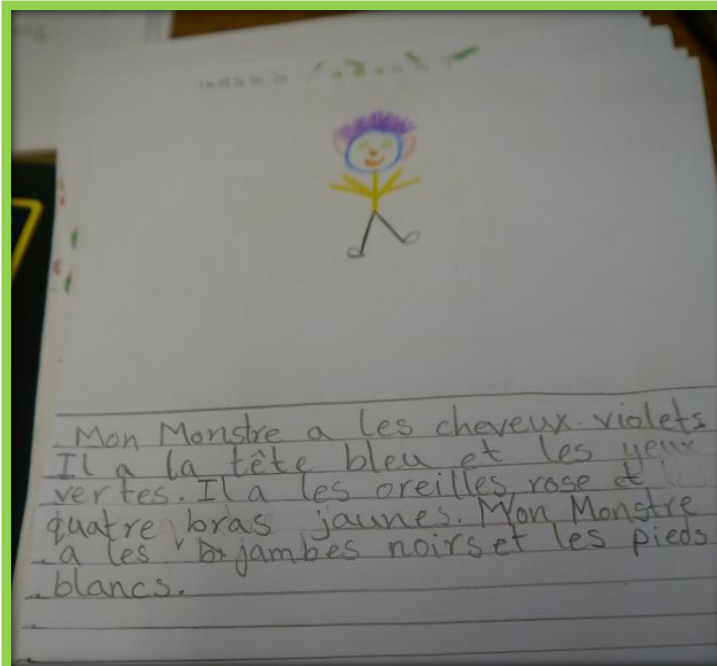 Mon Monstre a les cheveux. violets
Il a la tête bleu et les yeux
vertes. Il a les oreilles rose et
quatre bras jaunes. Mon Monstre
a les jambes noirs et les pieds
blancs.